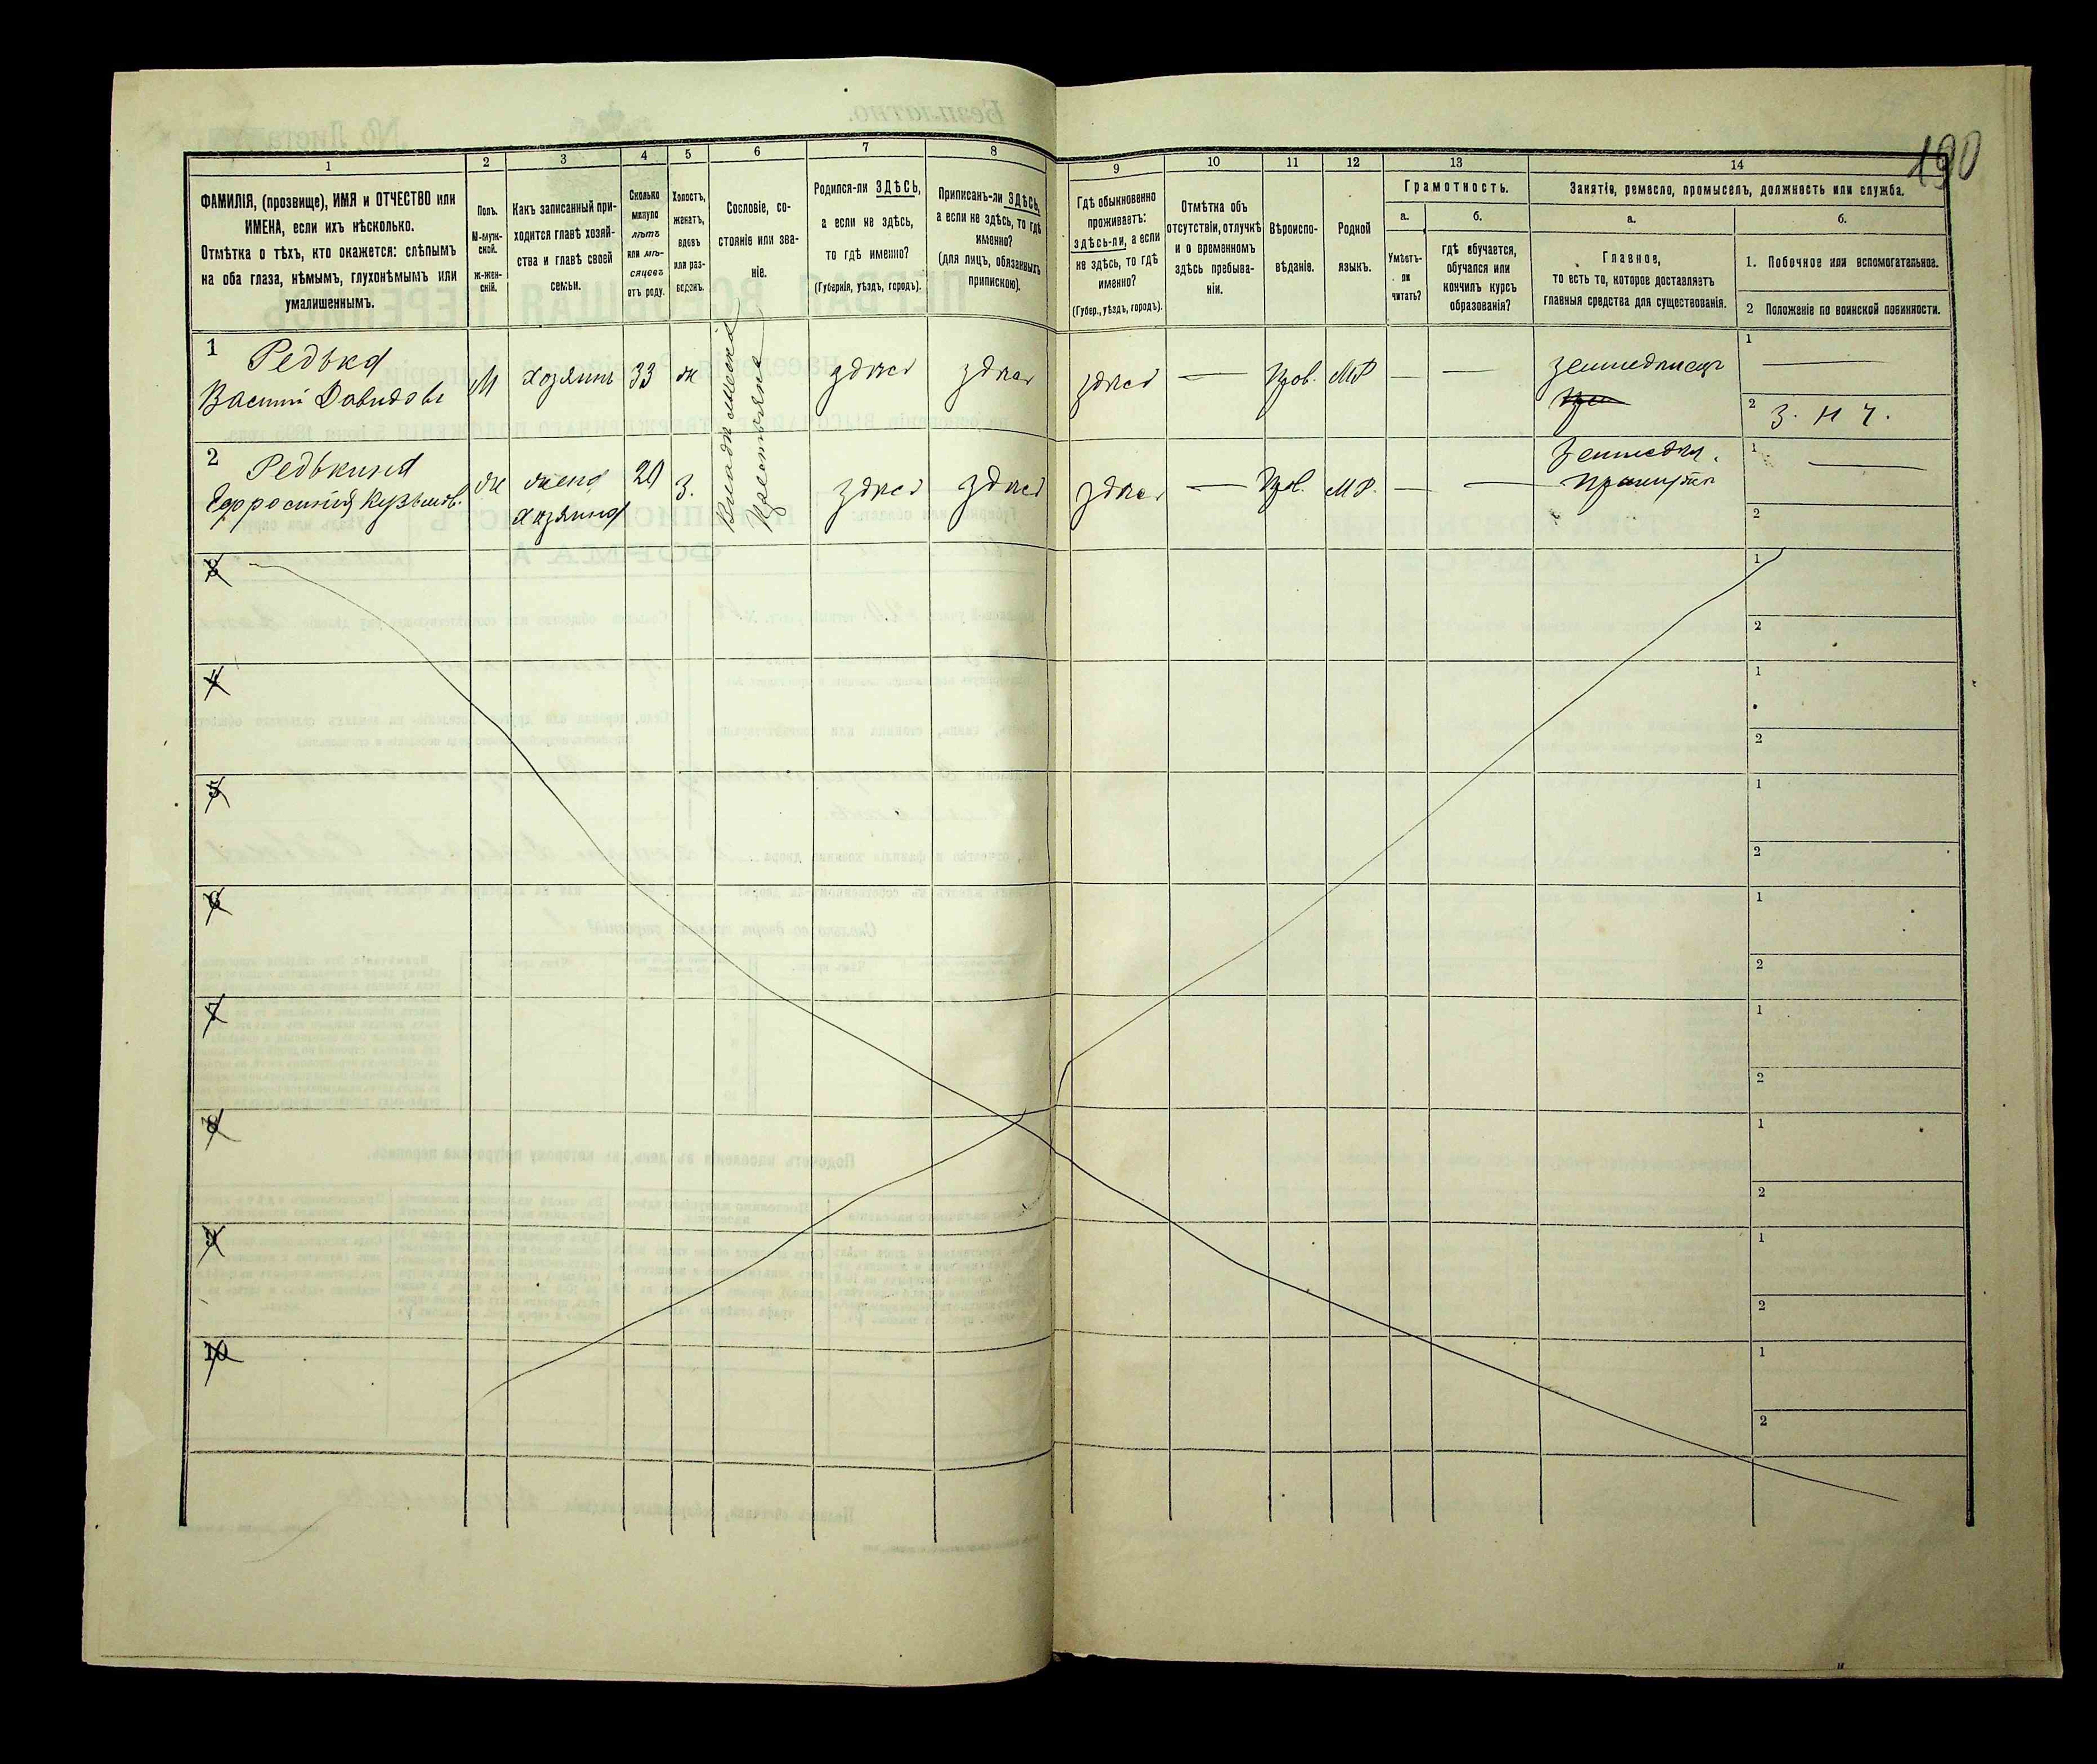 190
1
2
3
4
5
6
7
8
9
10
11
12
13
14
ФАМИЛІЯ, (прозвище), ИМЯ и ОТЧЕСТВО или
ИМЕНА, если ихъ нѣсколько.
Отмѣтка о тѣхъ, кто окажется: слѣпымъ
на оба глаза, нѣмымъ, глухонѣмымъ или
умалишеннымъ.
Полъ.
М-муж-
ской.
ж-жен-
скій.
Какъ записанный при-
ходится главѣ хозяй-
ства и главѣ своей
семьи.
Сколько
минуло
лѣтъ
или мѣ-
сяцевъ
отъ роду.
Холостъ,
женатъ,
вдовъ
или раз-
веденъ.
Сословіе, со-
стояніе или зва-
ніе.
Родился-ли ЗДѢСЬ,
а если не здѣсь,
то гдѣ именно?
(Губернія, уѣздъ, городъ).
Приписанъ-ли ЗДѢСЬ,
а если не здѣсь, то гдѣ
именно?
(для лицъ, обязанныхъ
припискою).
Гдѣ обыкновенно
проживаетъ:
здѣсь-ли, а если
не здѣсь, то гдѣ
именно?
(Губер., уѣздъ, городъ).
Отмѣтка объ
отсутствіи, отлучкѣ
и о временномъ
здѣсь пребыва-
ніи.
Вѣроиспо-
вѣданіе.
Родной
языкъ.
Грамотность.
а.
Умѣетъ-
ли
читать?
б.
гдѣ обучается,
обучался или
кончилъ курсъ
образованія?
Занятіе, ремесло, промыселъ, должность или служба.
а.
Главное,
то есть то, которое доставляетъ
главныя средства для существованія.
б.
1. Побочное или вспомогательное.
2 Положеніе по воинской повинности.
1
Редька
Василій Давидовъ
М
хозяинъ
33
ж
Владѣльческій
Крестьянинъ
здѣсь
здѣсь
здѣсь
—
Прав.
МР
—
—
земледѣлецъ
1
—
2
З. Н Ч.
2
Редькина
Ефросинія Кузьмов.
ж
жена
хозяина
20
З.
здѣсь
здѣсь
здѣсь
—
Прав.
МР.
—
—
Земледѣл.
1
—
2
3
1
2
4
1
2
5
1
2
6
1
2
7
1
2
8
1
2
9
1
2
10
1
2